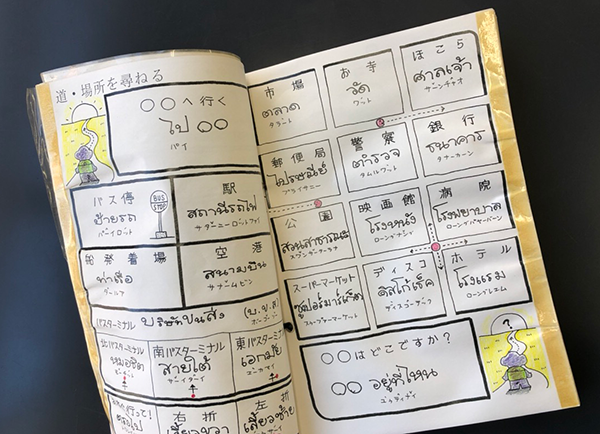 道・場所を尋ねる
○○へ行く
ไป ○○
パイ
バス停
ป้ายรถ
パーイロット
BUS STOP
駅
สถานีรถไฟ
サターニーロットファイ
船発着場
ท่าเรือ
タールア
空港
สนามบิน
サナームビン
バスターミナル
บริษัทขนส่ง
(บ.ข.ส)
ボーコーソー
北バスターミナル
หมอชิต
南バスターミナル
สายใต้
サーイターイ
東バスターミナル
เอกมัย
エーカマイ
右折
เลี้ยวขวา
左折
เลี้ยวซ้าย
市場
ตลาด
タラート
お寺
วัด
ワット
ほこら
ศาลเจ้า
サーンヂャオ
郵便局
ไปรษณีย์
プライサニー
警察
ตำรวจ
タムルワット
銀行
ธนาคาร
タナーカーン
公園
สวนสาธารณะ
スワンサーターラナ
映画館
โรงหนัง
ローングナング
病院
โรงพยาบาล
ローングパヤーバーン
スーパーマーケット
ซูเปอร์มาร์เก็ต
スープーマーケット
ディスコ
ดิสโก้เธ็ค
ディスコーテーク
ホテル
โรงแรม
ローングレーム
○○はどこですか?
○○ อยู่ที่ไหน
ユウティナイ
?